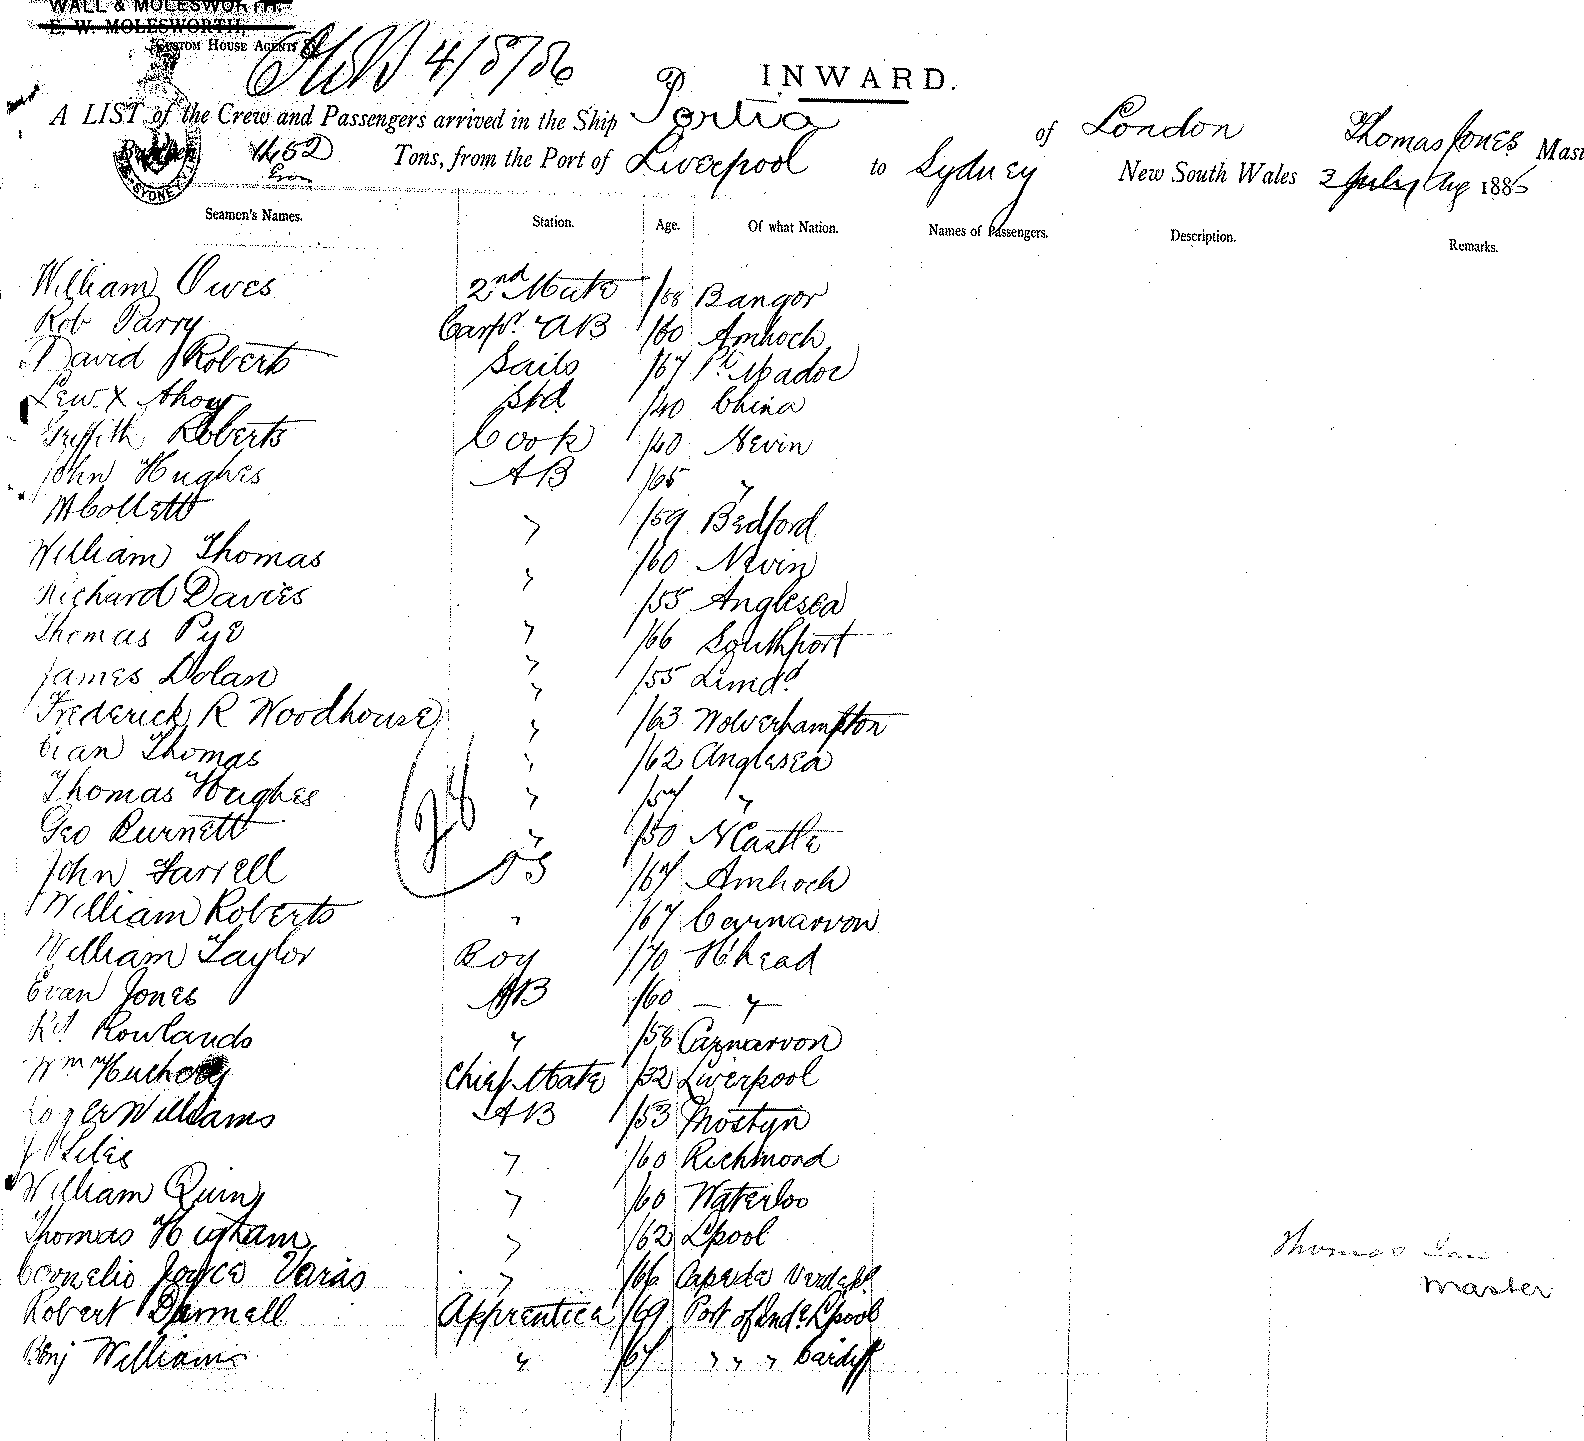 WALL & MOLESWORTH.
E. W. MOLESWORTH.
Custom House Agents
4/8/86
INWARD.
A LIST of the Crew and Passengers arrived in the Ship Portia of London Thomas Jones Mast
Burthen Tons, from the Port of Liverpool to Sydney New South Wales 3 July Aug 1886
SYDNEY
Seamen's Names. Station. Age. Of what Nation. Names of Passengers. Description. Remarks.
William Owes 2nd Mate /58 Bangor
Rob Parry Carpr. AB /60 Amhoch
David J Roberts Sails /67 Pt. Mador
Lew x Ahoy Std /40 China
Griffith Roberts Cook /40 Nevin
John Hughes AB /65 "
M Collett " /59 Bedford
William Thomas " /60 Nevin
Richard Davies " /55 Anglesea
Thomas Pye " /66 Southport
James Dolan " /55 Limd.
Frederick R Woodhouse " /63 Wolverhampton
Evan Thomas " /62 Anglesea
Thomas Hughes " /57 "
Geo Burnett " /50 NCastle
28
John Farrell OS /67 Amhoch
William Roberts " /67 Carnarvon
William Taylor Boy /70 H'head
Evan Jones AB /60 — "
Rd. Rowlands " /58 Carnarvon
Wm Chief Mate /32 Liverpool
Roger Williams AB /53 Mostyn
J Liles " /60 Richmond
William Quin " /60 Waterloo
Thomas Higham " /62 Lpool
Cornelio Joyce Varas " /66 Capede Verde
Robert Darmell Apprentice /69 Port of Inde. Lpool
Benj Williams " /67 " " " Cardiff
Thomas
Master